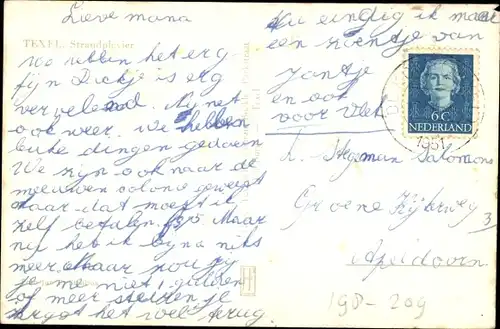 Lieve mama
TEXEL, Strandplevier
we hebben het erg
fijn Dickje is erg
vervelend. Nij net
ook weer. We hebben
leuke dingen gedaan
We zijn ook naar de
meeuwen colonie geweest
Maar dat moest ik
zelf betalen f 0,75 Maar
nu heb ik byna niks
meer. Maar zou jij
je me niet 1 gulden
of meer sturen je
krygt het wel terug.
Nu eindig ik maar
een zoentje van
Jantje
en ook
voor Vlek
6c
NEDERLAND
1951
Stegeman Salomons
Groene Zijdweg 3
Apeldoorn
198-209